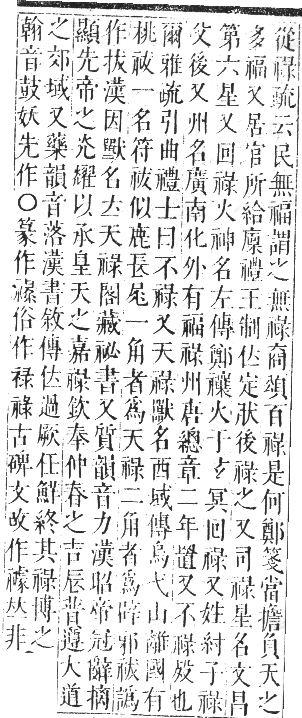 從祿疏云民無福謂之無祿商頌百祿是何鄭箋當擔負天之
多福又居官所給廩禮王制位定狀後祿之又司祿星名文昌
第六星又回祿火神名左傳鄭禳火于玄冥回祿又姓紂子祿
父後又州名廣南化外有福祿州唐總章二年置又不祿歿也
爾雅疏引曲禮士曰不祿又天祿獸名西域傳烏弋山離國有
桃祓一名符祓似鹿長尾一角者爲天祿二角者爲辟邪祓譌
作拔漢因獸名立天祿閣藏祕書又質韻音力漢昭帝冠辭摛
顯先帝之光耀以承皇天之嘉祿欽奉仲春之吉辰普遵大道
之郊域又藥韻音落漢書敘傳位過厥任鮮終其祿博之
翰音鼓妖先作〇篆作俗作禄祿古碑文故作𠀤非